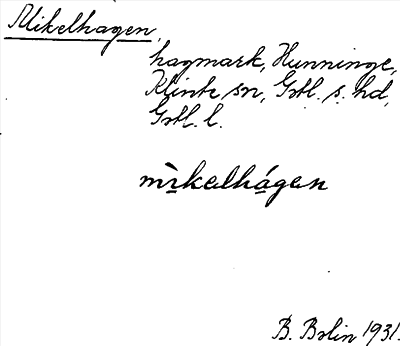 Mikelhagen,
hagmark, Hunninge,
Klinte sn, Gotl. s. hd,
Gotl. l.
mìkalhágen
B. Bolin 1931.